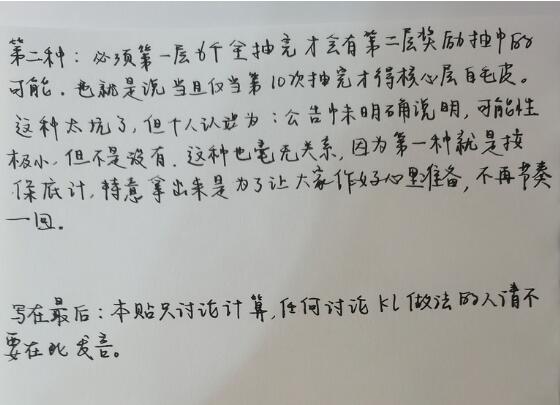 第二种：必须第一层6个全抽完才会有第二层奖励抽中的
可能。也就是说当且仅当第10次抽完才得核心层自毛皮。
这种太坑了，但个人认为：公告中未明确说明，可能性
极小，但不是没有。这种也毫无关系，因为第一种就是按
保底计，特意拿出来是为了让大家作好心里准备，不再节奏
一回。
写在最后：本贴只讨论计算，任何讨论KL做法的人请不
要在此发言。